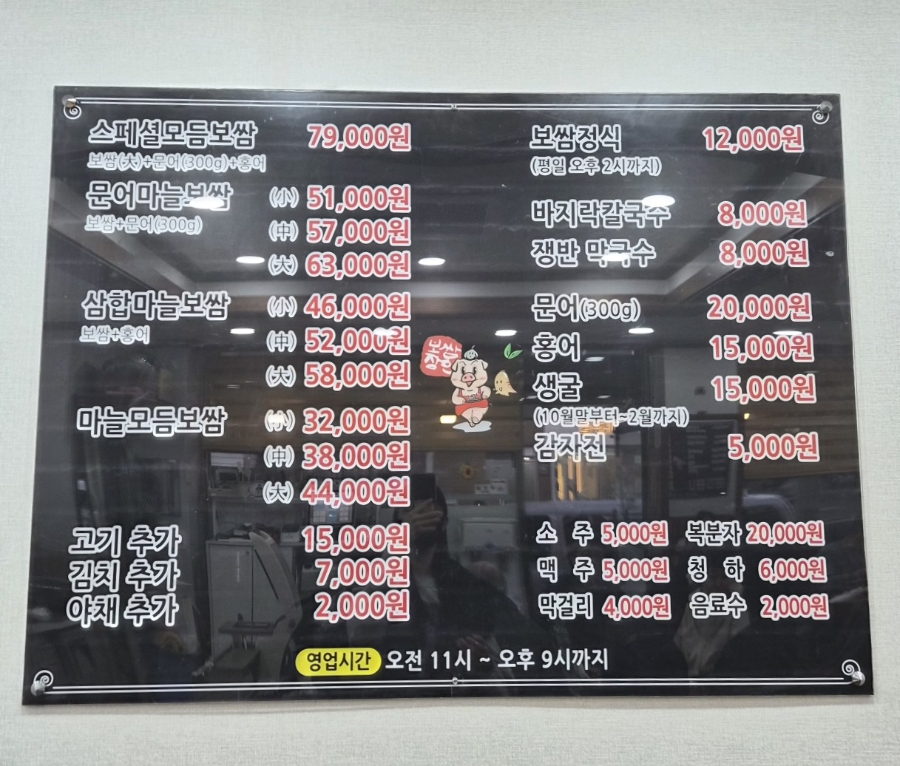 스페셜모듬보쌈 79,000원
보쌈(大)+문어(300g)+홍어
문어마늘보쌈 (小) 51,000원
보쌈+문어(300g) (中) 57,000원
(大) 63,000원
삼합마늘보쌈 (小) 46,000원
보쌈+홍어 (中) 52,000원
(大) 58,000원
마늘모듬보쌈 (小) 32,000원
(中) 38,000원
(大) 44,000원
고기 추가 15,000원
김치 추가 7,000원
야채 추가 2,000원
보쌈정식 12,000원
(평일 오후 2시까지)
바지락칼국수 8,000원
쟁반 막국수 8,000원
문어(300g) 20,000원
홍어 15,000원
생굴 15,000원
(10월말부터~2월까지)
감자전 5,000원
소 주 5,000원 복분자 20,000원
맥 주 5,000원 청 하 6,000원
막걸리 4,000원 음료수 2,000원
영업시간 오전 11시 ~ 오후 9시까지